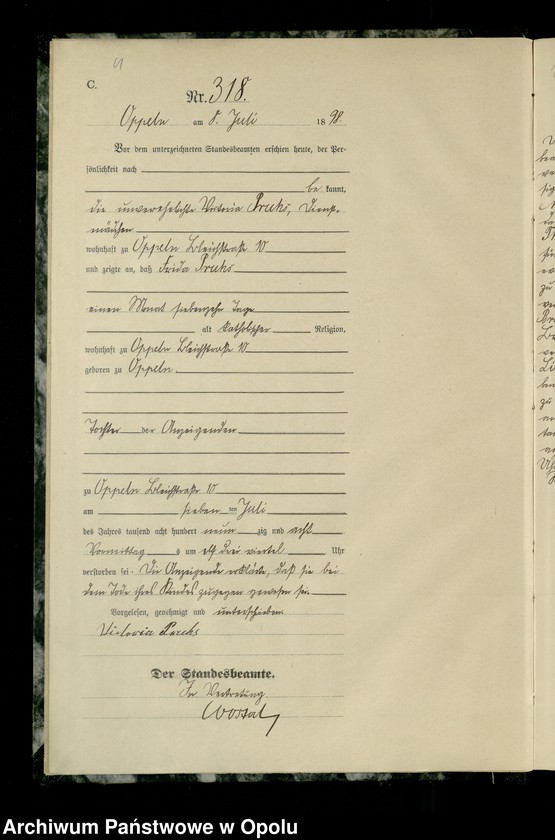 C.
Nr. 318.
Oppeln am 8. Juli 1898.
Vor dem unterzeichneten Standesbeamten erschien heute, der Per-
sönlichkeit nach
be kannt,
die unverehelichte Victoria Preeks, Dienst-
mädchen
wohnhaft zu Oppeln Bleichstraße 10
und zeigte an, daß Frida Preeks
einen Monat siebenzehn Tage
alt katholischer Religion,
wohnhaft zu Oppeln Bleichstraße 10
geboren zu Oppeln
Tochter der Anzeigenden
zu Oppeln Bleichstraße 10
am sieben ten Juli
des Jahres tausend acht hundert neun zig und acht
Vormittag s um elf drei viertel Uhr
verstorben sei. Die Anzeigende erklärte, daß sie bei
dem Tode ihres Kindes zugegen gewesen sei.
Vorgelesen, genehmigt und unterschrieben
Victoria
Der Standesbeamte.
In Vertretung
Archiwum Państwowe w Opolu